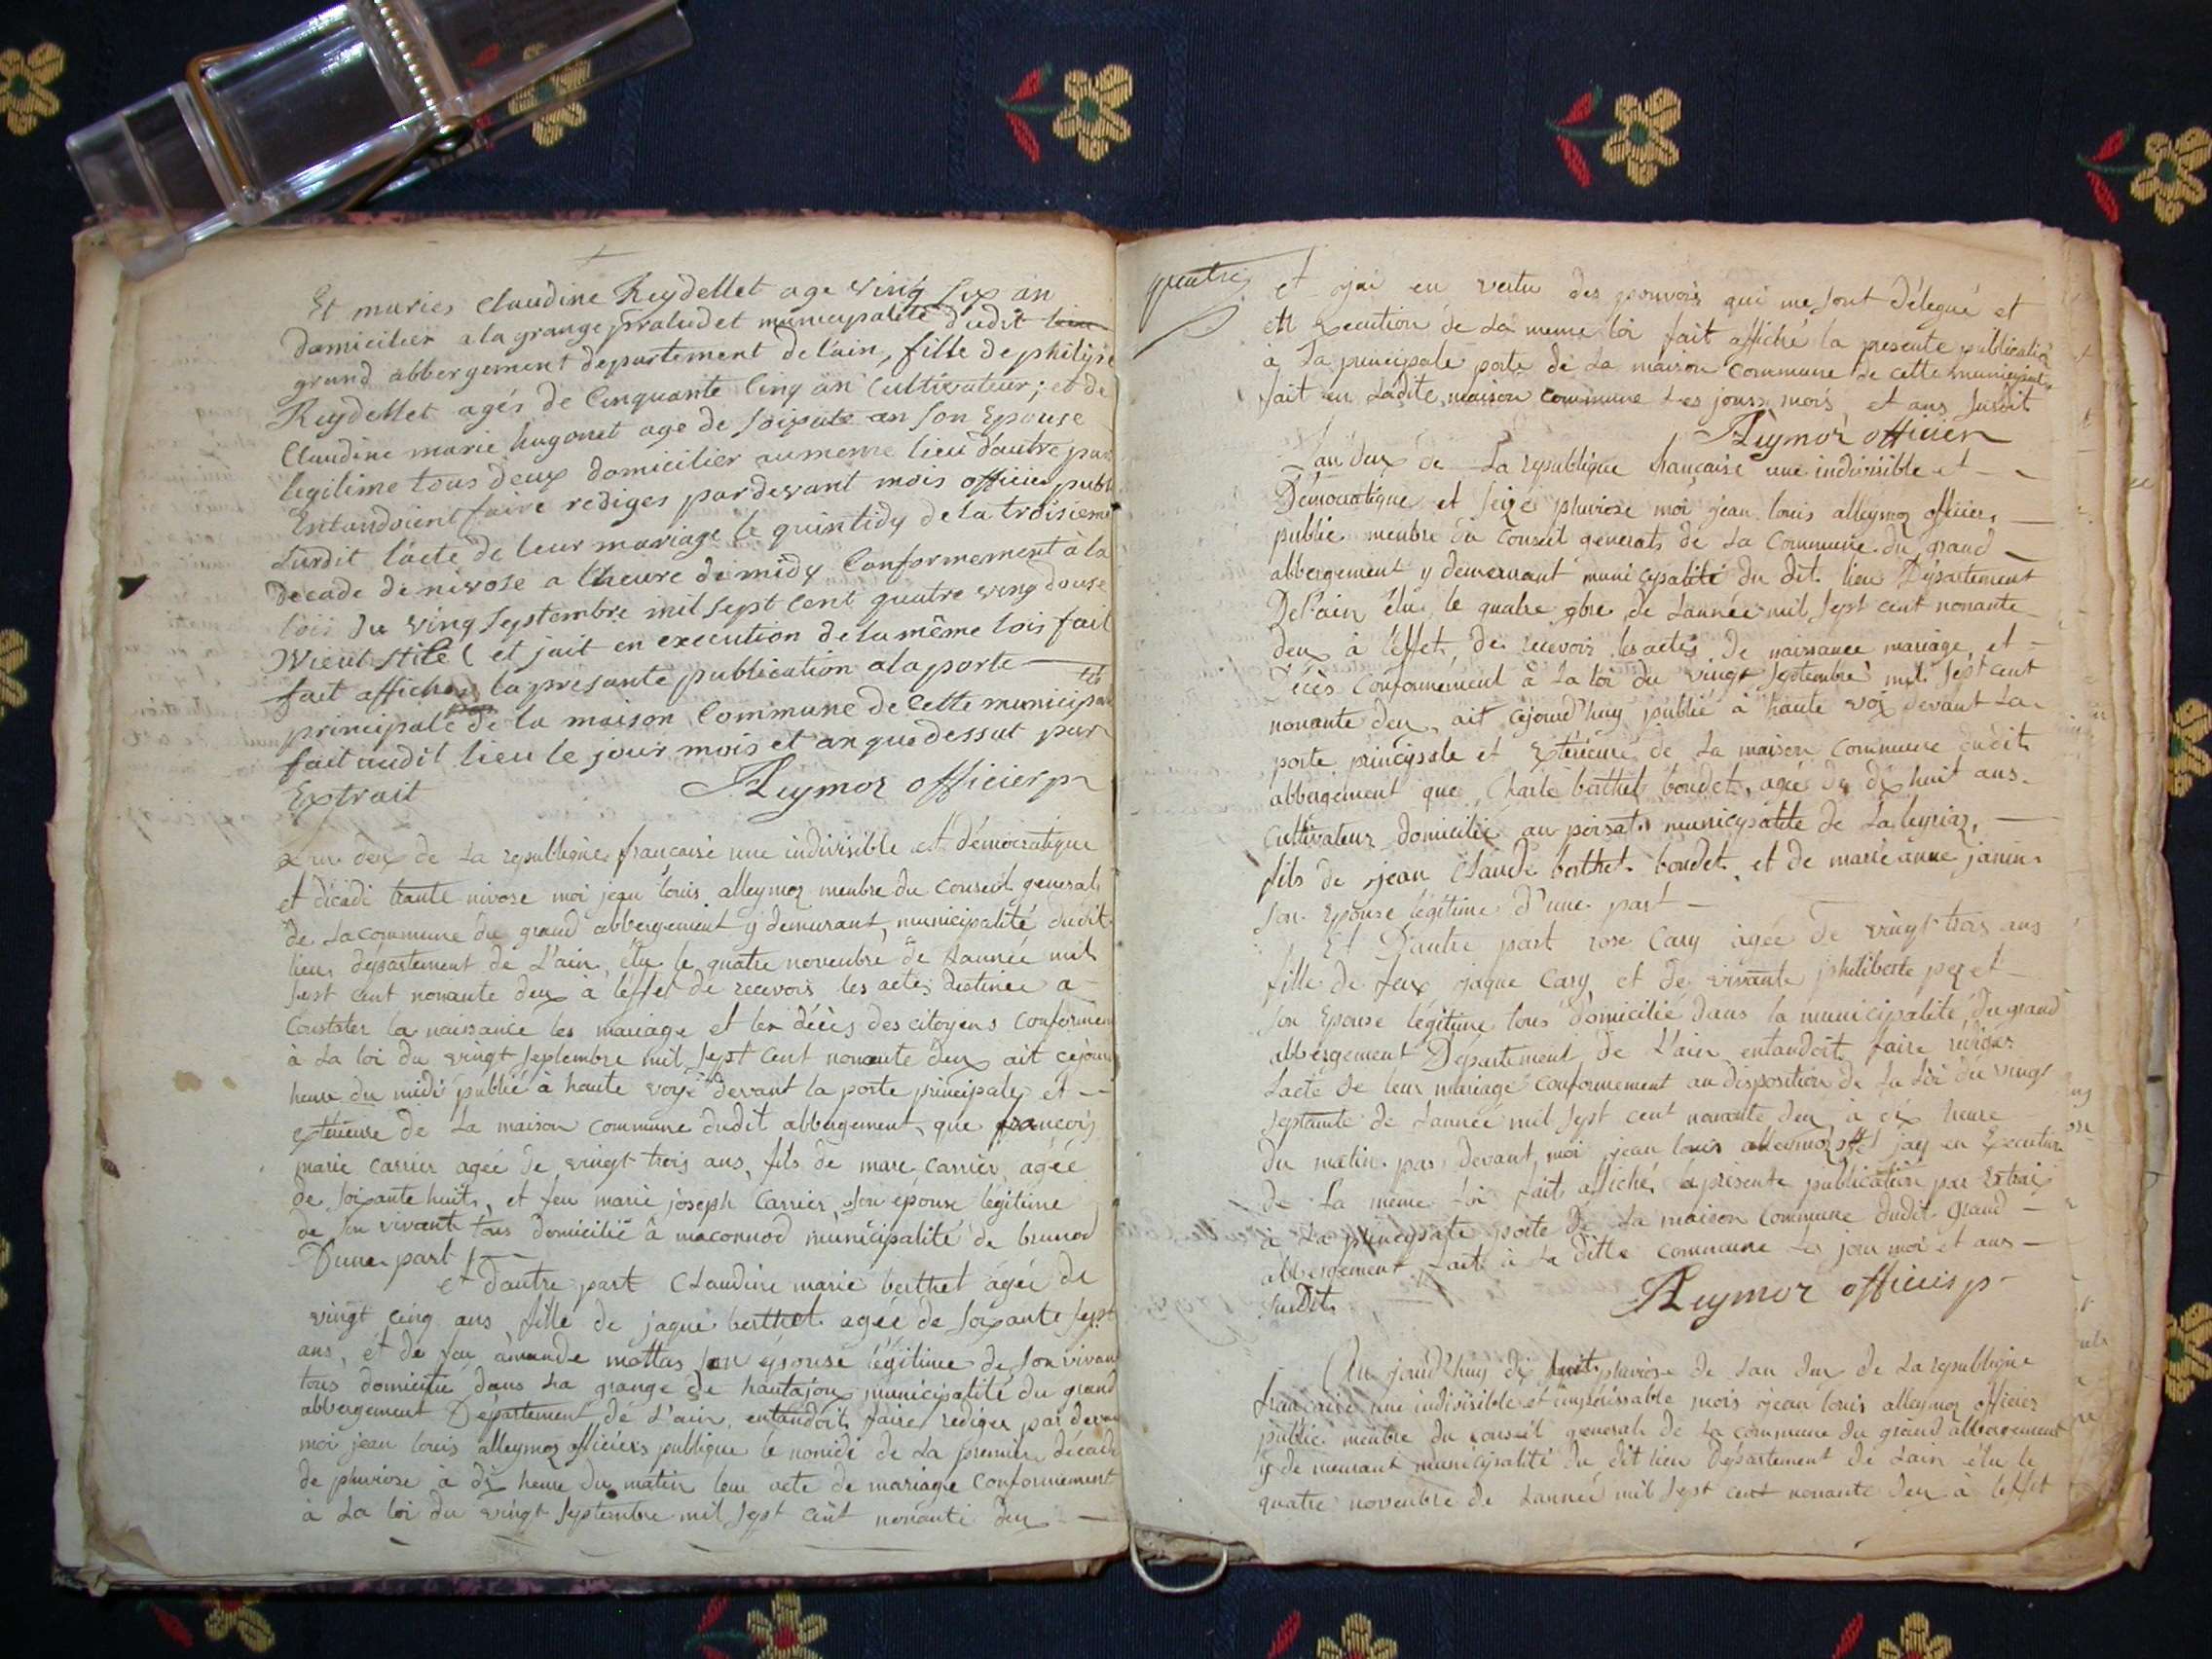 Et maries Claudine Reydellet age ving six an
domicilier a la grange praludet municypalité dudit lieu
grand abbergement departement de lain, fille de philipe
Reydellet agés de Cinquante Cinq an Cultivateur; et de
Claudine marie hugonet age de soixate an son Epouse
legitime tous deux domicilier au meme lieu dautre par
Entandoient faire rediges pardevant mois officier publi
surdit lacte de leur mariage le quintidy de la troisieme
Decade de nivose a lheure de midy Conformement à la
lois du ving septembre mil sept cent quatre ving douse
Wieul stile ( et jait en execution de la même lois fait
fait afficher la presante publication a la porte
principale de la maison Commune de Cette municipa lité
fait audit lieu le jour mois et an que dessut par
Extrait Aleymoz officier p
Lan deux de la republique francaise une indivisible et démocratique
et décadi trante nivose moi jean louis alleymoz menbre du conseil general
de la commune du grand abbergement y demurant, municipalité dudit
lieu departement de L'ain, élu le quatre novenbre de Lannée mil
sept cent nonante deux a léffet de recevoir les actes destinée a
Constater la naissance les mariage et les décès des citoyens conformem
à la loi du vingt septembre mil sept cent nonante deux ait cejour
heure du midi publié à haute voye devant la porte principale et
extérieure de la maison commune dudit abbergement, que francois
marie carrier agée de vingt trois ans, fils de marc carrier agée
de soixante huit, et feu marie joseph Carrier son épouse légitime
de son vivant tous domicilié à maconnod municipalité de brenod
Dune part
et dautre part Claudine marie berthet agée de
vingt cinq ans fille de jaque berthet agée de soixante sept
ans, et de feu amande mottas son épouse légitime de son vivan
tous domicilié dans la grange de hautajoux municipalité du grand
abbergement Département de L'ain, entandoit faire rediger par devan
moi jean louis alleymoz officiers publique le nonidi de la premiere décade
de pluviose à dix heure du matin leur acte de mariage conformement
à la loi du vingt septembre mil sept cent nonante deux
quatre
et jai en vertu des pouvoirs qui me sont délegué et
en execution de la meme loi fait affiché la presente publicatio
à la principale porte de la maison commune de cette municipal
fait en ladite maison commune les jours mois et ans susdit
Aleymoz officier
Lan deux de la republique francaise une indivisible et
Démocratique et seize pluviose moi jean louis alleymoz officier
public menbre du conseil generals de la commune du grand
abbergement y demeurant municypalité du dit lieu Département
De l'ain élu le quatre 9bre de Lannée mil sept cent nonante
deux à leffet de recevoir les actes de naissance mariage et
Décès conformément à la loi du vingt septembre mil sept cent
nonante deux, ait cejourd'huy publié à haute voix devant la
porte princypale et Extérieure de la maison commune dudit
abbergement que Charle berthet bondet, agée de dix huit ans
cultivateur domicilié au poisat municypalite de Laleyriaz,
fils de jean Claude berthet bondet et de marie anne janin
son Epouse légitime d'une part
Et D'autre part rose Cary agée de vingt trois ans
fille de feux jaque Cary et de vivante philiberte peret
son Epouse légitime tous domicilié dans la municipalité du grand
abbergement Département de L'ain entandoit faire rédiger
Lacte de leur mariage conformement au disposition de la loi du vingt
septembre de Lannée mil sept cent nonante deux à dix heure
du matin par devant moi jean louis alleymoz et jay en Execution
de La meme Loi fait affiché la présente publication par Extrait
à La princypale porte de La maison commune dudit grand
abbergement fait à La ditte commune les jour moi et ans
susdit Aleymoz officier p
Au jourd'huy dix huit pluviose de Lan deux de la republique
francaise une indivisible et impérissable mois jean louis alleymoz officier
public menbre du conseil general de la commune du grand abbergement
y de meurant municipalité du dit lieu Département de L'ain élu le
quatre novenbre de Lannée mil sept cent nonante deux à leffet